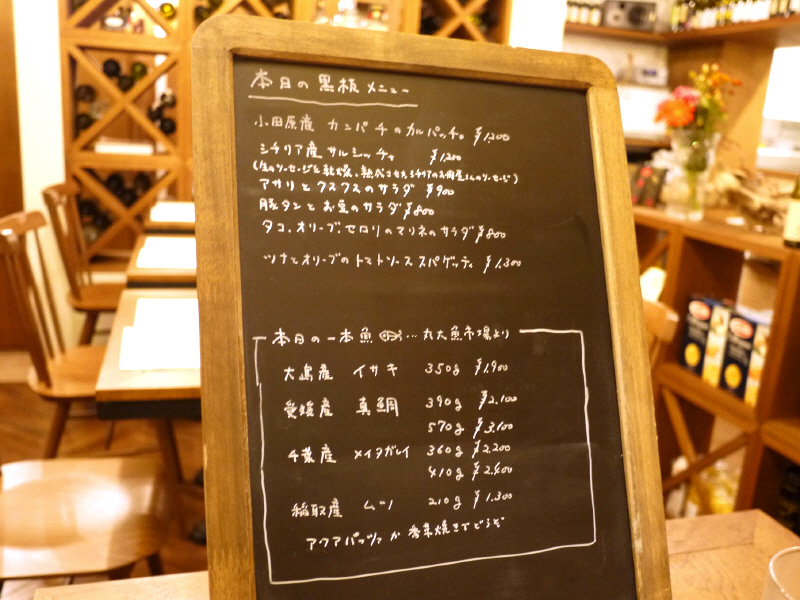 本日の黒板メニュー
小田原産 カンパチのカルパッチョ ¥1,200
シチリア産サルシッチャ ¥1,200
(生のソーセージを乾燥、熟成させたシチリアのお肉屋さんのソーセージ)
アサリとクスクスのサラダ ¥900
豚タンとお豆のサラダ ¥800
タコ、オリーブ、セロリのマリネのサラダ ¥800
ツナとオリーブのトマトソーススパゲッティ ¥1,300
本日の一本魚 … 丸大魚市場より
大島産 イサキ 350g ¥1,900
愛媛産 真鯛 390g ¥2,100
570g ¥3,100
千葉産 メイタガレイ 360g ¥2,200
410g ¥2,400
稲取産 ムツ 210g ¥1,300
アクアパッツァか香草焼きでどうぞ